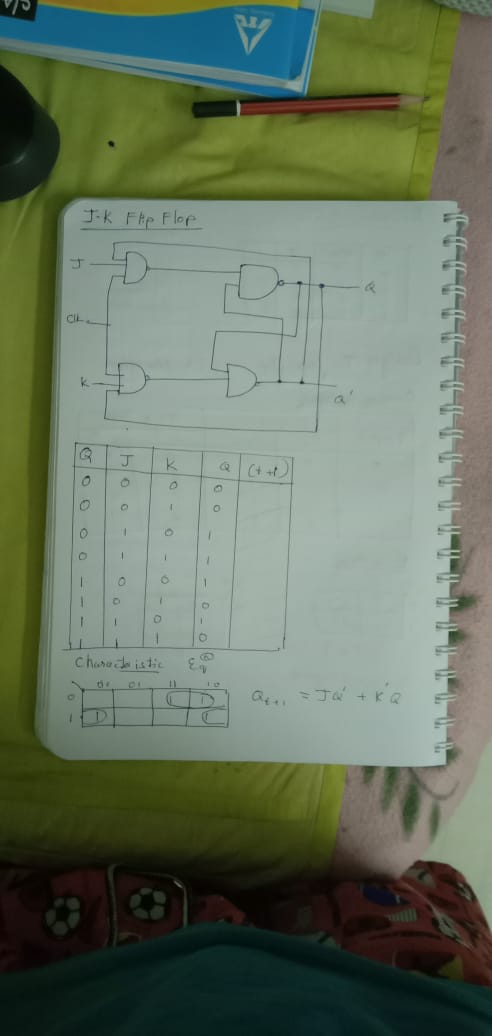 J-K Flip Flop
J
Clk
K
Q
Q'
Q J K Q (t+1)
0 0 0 0
0 0 1 0
0 1 0 1
0 1 1 1
1 0 0 1
1 0 1 0
1 1 0 1
1 1 1 0
Characteristic Eqⁿ
00 01 11 10
0 1 1
1 1 1
Qt+1 = JQ' + K'Q